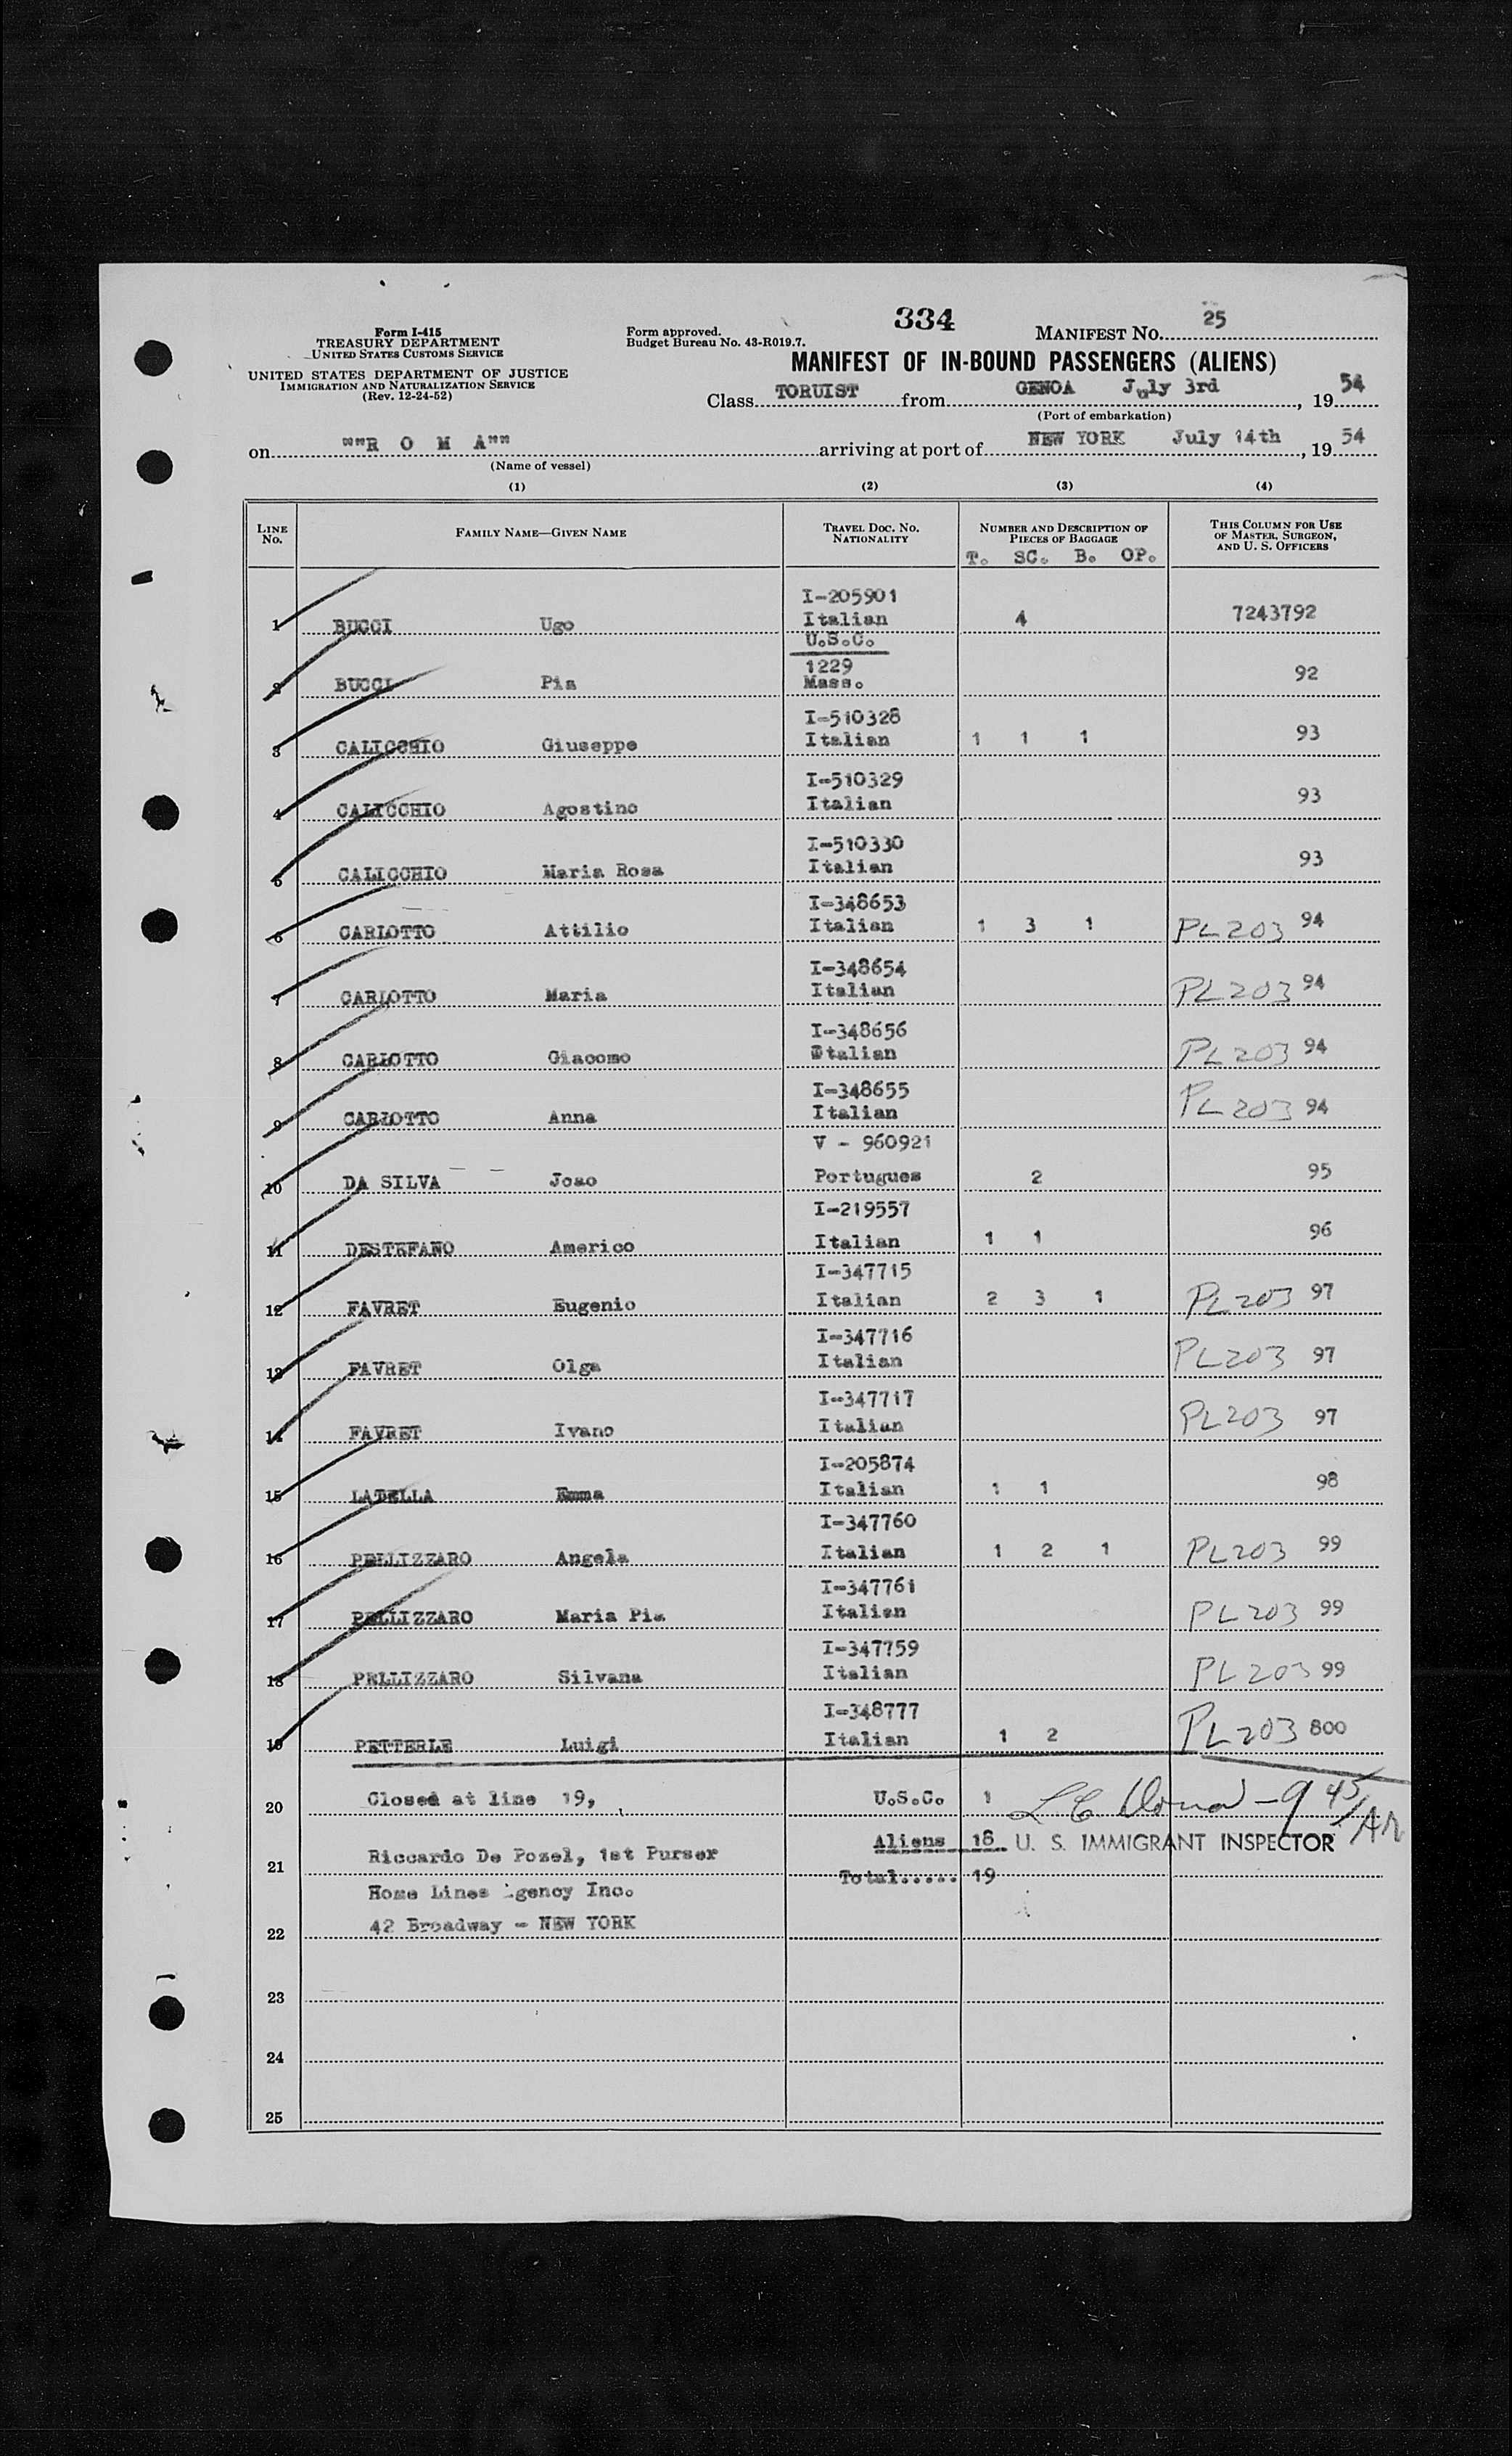 334
Form I-415
TREASURY DEPARTMENT
UNITED STATES CUSTOMS SERVICE
UNITED STATES DEPARTMENT OF JUSTICE
IMMIGRATION AND NATURALIZATION SERVICE
(Rev. 12-24-52)
Form approved.
Budget Bureau No. 43-R019.7.
MANIFEST NO. 25
MANIFEST OF IN-BOUND PASSENGERS (ALIENS)
Class TORUIST from GENOA July 3rd, 19 54
(Port of embarkation)
on ""R O M A"" arriving at port of NEW YORK July 14th, 19 54
(Name of vessel)
(1) (2) (3) (4)
LINE NO. FAMILY NAME—GIVEN NAME TRAVEL DOC. NO. NATIONALITY NUMBER AND DESCRIPTION OF PIECES OF BAGGAGE THIS COLUMN FOR USE OF MASTER, SURGEON, AND U. S. OFFICERS
T. SC. B. OP.
I-205901
1 BUCCI Ugo Italian 4 7243792
U.S.C.
1229
2 BUCCI Pia Mass. 92
I-510328
3 CALICCHIO Giuseppe Italian 1 1 1 93
I-510329
4 CALICCHIO Agostino Italian 93
I-510330
5 CALICCHIO Maria Rosa Italian 93
I-348653
6 CARLOTTO Attilio Italian 1 3 1 PL203 94
I-348654
7 CARLOTTO Maria Italian PL203 94
I-348656
8 CARLOTTO Giacomo Italian PL203 94
I-348655
9 CARLOTTO Anna Italian PL203 94
V - 960921
10 DA SILVA Joao Portugues 2 95
I-219557
11 DESTEFANO Americo Italian 1 1 96
I-347715
12 FAVRET Eugenio Italian 2 3 1 PL203 97
I-347716
13 FAVRET Olga Italian PL203 97
I-347717
14 FAVRET Ivano Italian PL203 97
I-205874
15 LABELLA Emma Italian 1 1 98
I-347760
16 PELLIZZARO Angela Italian 1 2 1 PL203 99
I-347761
17 PELLIZZARO Maria Pia Italian PL203 99
I-347759
18 PELLIZZARO Silvana Italian PL203 99
I-348777
19 PETTERLE Luigi Italian 1 2 PL203 800
20 Closed at line 19, U.S.C. 1 9 45/AM
Aliens 18 U. S. IMMIGRANT INSPECTOR
21 Riccardo De Pozel, 1st Purser Total..... 19
Home Lines gency Inc.
22 42 Broadway - NEW YORK
23
24
25